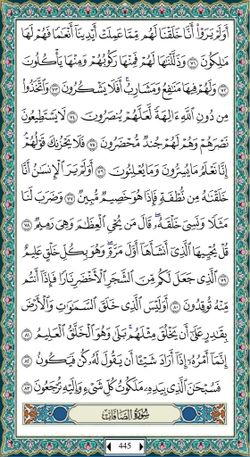 أَوَلَمْ يَرَوْا۟ أَنَّا خَلَقْنَا لَهُم مِّمَّا عَمِلَتْ أَيْدِينَآ أَنْعَٰمًا فَهُمْ لَهَا
مَٰلِكُونَ ٧١ وَذَلَّلْنَٰهَا لَهُمْ فَمِنْهَا رَكُوبُهُمْ وَمِنْهَا يَأْكُلُونَ
٧٢ وَلَهُمْ فِيهَا مَنَٰفِعُ وَمَشَارِبُ أَفَلَا يَشْكُرُونَ ٧٣ وَٱتَّخَذُوا۟
مِن دُونِ ٱللَّهِ ءَالِهَةً لَّعَلَّهُمْ يُنصَرُونَ ٧٤ لَا يَسْتَطِيعُونَ
نَصْرَهُمْ وَهُمْ لَهُمْ جُندٌ مُّحْضَرُونَ ٧٥ فَلَا يَحْزُنكَ قَوْلُهُمْ
إِنَّا نَعْلَمُ مَا يُسِرُّونَ وَمَا يُعْلِنُونَ ٧٦ أَوَلَمْ يَرَ ٱلْإِنسَٰنُ أَنَّا
خَلَقْنَٰهُ مِن نُّطْفَةٍ فَإِذَا هُوَ خَصِيمٌ مُّبِينٌ ٧٧ وَضَرَبَ لَنَا
مَثَلًا وَنَسِىَ خَلْقَهُۥ قَالَ مَن يُحْىِ ٱلْعِظَٰمَ وَهِىَ رَمِيمٌ ٧٨
قُلْ يُحْيِيهَا ٱلَّذِىٓ أَنشَأَهَآ أَوَّلَ مَرَّةٍ وَهُوَ بِكُلِّ خَلْقٍ عَلِيمٌ
٧٩ ٱلَّذِى جَعَلَ لَكُم مِّنَ ٱلشَّجَرِ ٱلْأَخْضَرِ نَارًا فَإِذَآ أَنتُم
مِّنْهُ تُوقِدُونَ ٨٠ أَوَلَيْسَ ٱلَّذِى خَلَقَ ٱلسَّمَٰوَٰتِ وَٱلْأَرْضَ
بِقَٰدِرٍ عَلَىٰٓ أَن يَخْلُقَ مِثْلَهُم بَلَىٰ وَهُوَ ٱلْخَلَّٰقُ ٱلْعَلِيمُ ٨١
إِنَّمَآ أَمْرُهُۥٓ إِذَآ أَرَادَ شَيْـًٔا أَن يَقُولَ لَهُۥ كُن فَيَكُونُ ٨٢
فَسُبْحَٰنَ ٱلَّذِى بِيَدِهِۦ مَلَكُوتُ كُلِّ شَىْءٍ وَإِلَيْهِ تُرْجَعُونَ ٨٣
سُورَةُ ٱلصَّافَّاتِ
445